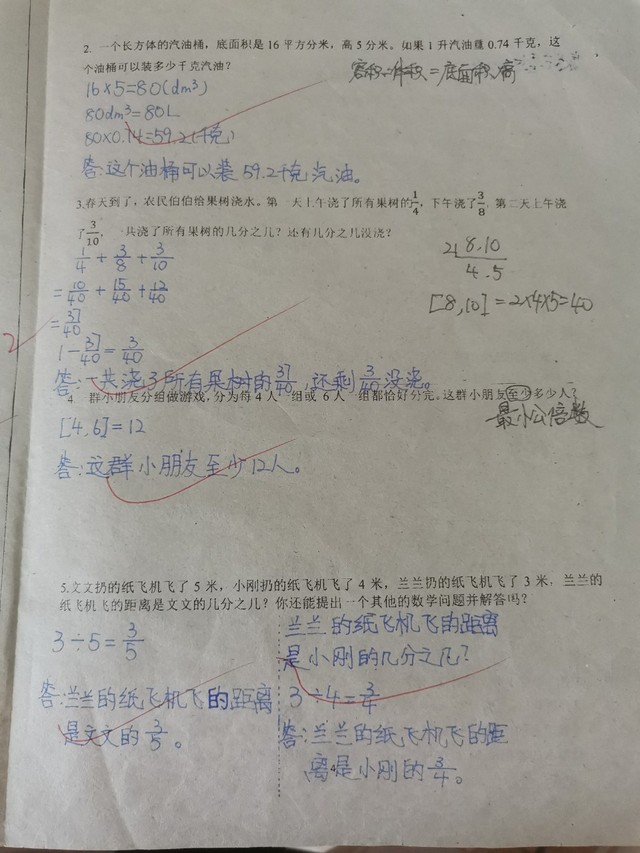 2. 一个长方体的汽油桶，底面积是 16 平方分米，高 5 分米。如果 1 升汽油重 0.74 千克，这
个油桶可以装多少千克汽油？
容积=体积=底面积×高
16×5=80(dm³)
80dm³=80L
80×0.74=59.2(千克)
答:这个油桶可以装 59.2千克 汽油。
3.春天到了，农民伯伯给果树浇水。第一天上午浇了所有果树的1/4，下午浇了3/8，第二天上午浇
了3/10，一共浇了所有果树的几分之几？还有几分之几没浇？
1/4 + 3/8 + 3/10
=10/40 + 15/40 + 12/40
=37/40
1-37/40=3/40
2|8.10
4.5
[8,10]=2×4×5=40
2
答:一共浇了所有果树的37/40,还剩3/40没浇。
4 群小朋友分组做游戏，分为每 4 人一组或 6 人一组都恰好分完。这群小朋友至少多少人？
最小公倍数
[4,6]=12
答:这群小朋友至少12人。
5.文文扔的纸飞机飞了 5 米，小刚扔的纸飞机飞了 4 米，兰兰扔的纸飞机飞了 3 米，兰兰的
纸飞机飞的距离是文文的几分之几？你还能提出一个其他的数学问题并解答吗？
3÷5=3/5
答:兰兰的纸飞机飞的距离
是文文的3/5。
兰兰的纸飞机飞的距离
是小刚的几分之几?
3÷4=3/4
答:兰兰的纸飞机飞的距
离是小刚的3/4。
4